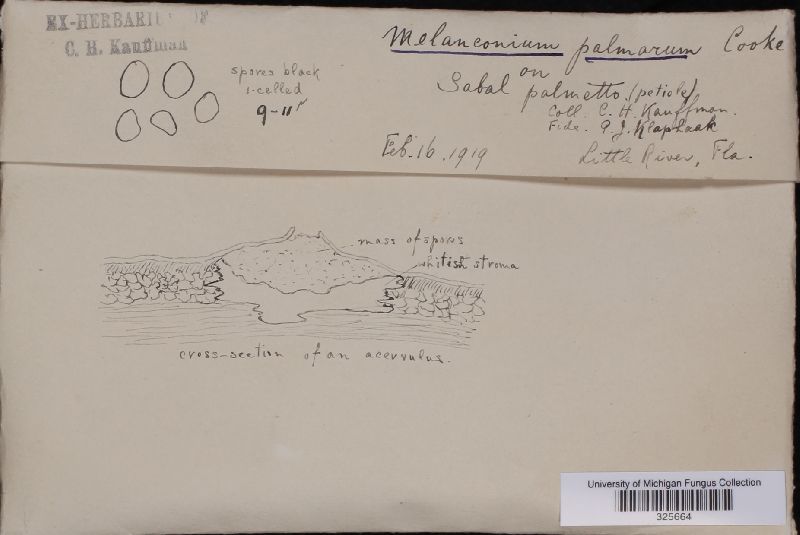 EX-HERBARIUM
C. H. Kauffman
spores black
1-celled
9-11µ
Melanconium palmarum Cooke
on
Sabal palmetto (petiole)
Coll. C. H. Kauffman.
Fide.
Feb. 16. 1919
Little River, Fla.
mass of spores
whitish stroma
cross-section of an acervulus.
University of Michigan Fungus Collection
325664